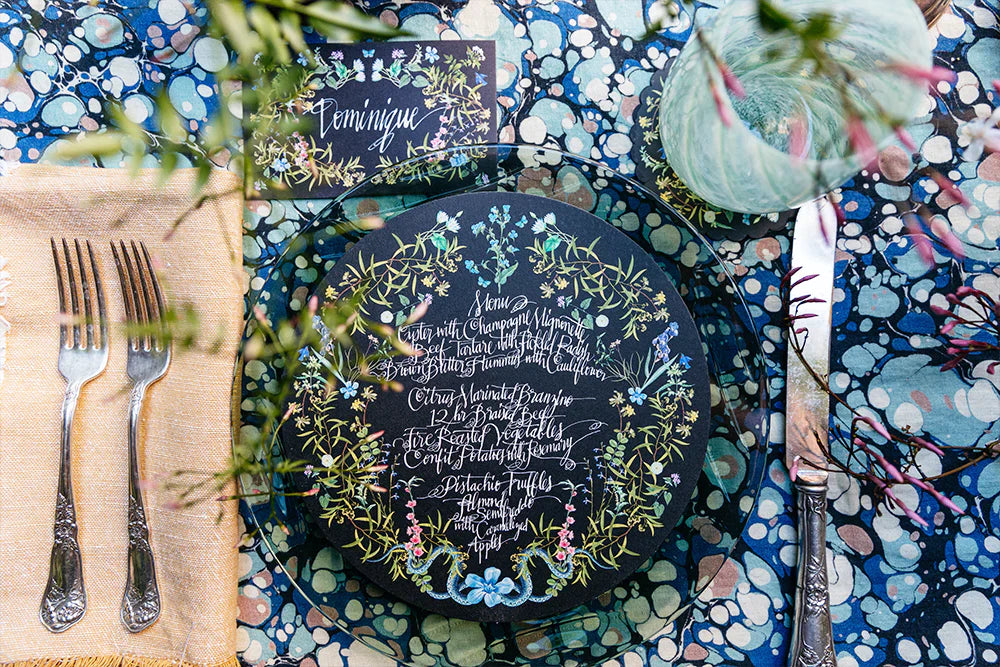 Dominique
Menu
Oyster with Champagne Mignonette
Beef Tartare with Pickled Radish
Brown Butter Hummus with Cauliflower
Citrus Marinated Branzino
12 hr Braised Beef
Fire Roasted Vegetables
Confit Potatoes with Rosemary
Pistachio Truffles
Almond
Semifreddo
with Caramelized
Apples